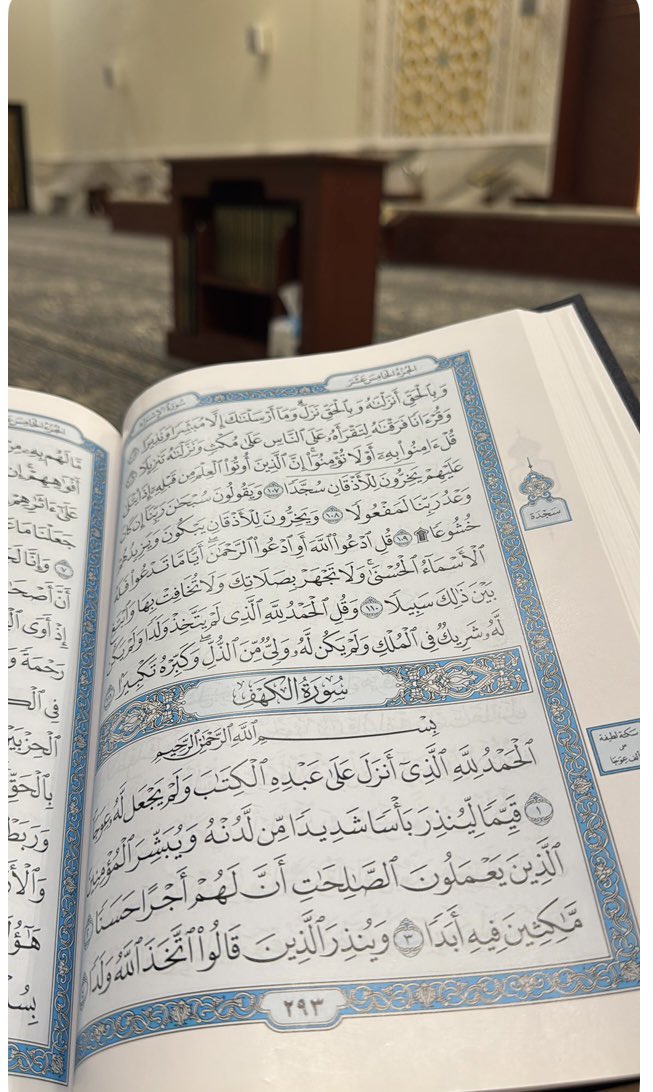 الجزء الخامس عشر
سورة الإسراء
وَبِٱلْحَقِّ أَنزَلْنَٰهُ وَبِٱلْحَقِّ نَزَلَۗ وَمَآ أَرْسَلْنَٰكَ إِلَّا مُبَشِّرًا وَنَذِيرًا
وَقُرْءَانًا فَرَقْنَٰهُ لِتَقْرَأَهُۥ عَلَى ٱلنَّاسِ عَلَىٰ مُكْثٍ وَنَزَّلْنَٰهُ تَنزِيلًا
قُلْ ءَامِنُوا۟ بِهِۦٓ أَوْ لَا تُؤْمِنُوٓا۟ۚ إِنَّ ٱلَّذِينَ أُوتُوا۟ ٱلْعِلْمَ مِن قَبْلِهِۦٓ إِذَا
عَلَيْهِمْ يَخِرُّونَ لِلْأَذْقَانِ سُجَّدًا ١٠٧ وَيَقُولُونَ سُبْحَٰنَ رَبِّنَآ إِن
وَعْدُ رَبِّنَا لَمَفْعُولًا ١٠٨ وَيَخِرُّونَ لِلْأَذْقَانِ يَبْكُونَ وَيَزِيدُهُمْ
خُشُوعًا ۩ ١٠٩ قُلِ ٱدْعُوا۟ ٱللَّهَ أَوِ ٱدْعُوا۟ ٱلرَّحْمَٰنَۖ أَيًّا مَّا تَدْعُوا۟ فَلَهُ
ٱلْأَسْمَآءُ ٱلْحُسْنَىٰۚ وَلَا تَجْهَرْ بِصَلَاتِكَ وَلَا تُخَافِتْ بِهَا وَٱبْتَغِ
بَيْنَ ذَٰلِكَ سَبِيلًا ١١٠ وَقُلِ ٱلْحَمْدُ لِلَّهِ ٱلَّذِى لَمْ يَتَّخِذْ وَلَدًا وَلَمْ يَكُن
لَّهُۥ شَرِيكٌ فِى ٱلْمُلْكِ وَلَمْ يَكُن لَّهُۥ وَلِىٌّ مِّنَ ٱلذُّلِّۖ وَكَبِّرْهُ تَكْبِيرًا
سُورَةُ الكَهْفِ
بِسْمِ ٱللَّهِ ٱلرَّحْمَٰنِ ٱلرَّحِيمِ
ٱلْحَمْدُ لِلَّهِ ٱلَّذِىٓ أَنزَلَ عَلَىٰ عَبْدِهِ ٱلْكِتَٰبَ وَلَمْ يَجْعَل لَّهُۥ عِوَجَا
١ قَيِّمًا لِّيُنذِرَ بَأْسًا شَدِيدًا مِّن لَّدُنْهُ وَيُبَشِّرَ ٱلْمُؤْمِنِينَ
ٱلَّذِينَ يَعْمَلُونَ ٱلصَّٰلِحَٰتِ أَنَّ لَهُمْ أَجْرًا حَسَنًا
مَّٰكِثِينَ فِيهِ أَبَدًا ٣ وَيُنذِرَ ٱلَّذِينَ قَالُوا۟ ٱتَّخَذَ ٱللَّهُ وَلَدًا
٢٩٣
سَجْدَة
سكتة لطيفة
على
ألف عِوَجَا
مَّا لَهُم بِهِۦ مِنْ
أَفْوَٰهِهِمْۚ إِن
عَلَىٰٓ ءَاثَٰرِهِمْ
جَعَلْنَا مَا عَلَى
وَإِنَّا
أَنَّ أَصْحَٰبَ
إِذْ أَوَى
رَحْمَةً وَ
فِى
ٱلْحِزْبَيْنِ
بِٱلْحَقِّ
وَرَبَطْ
وَٱلْأَ
هَٰٓؤُلَ
بِسُ